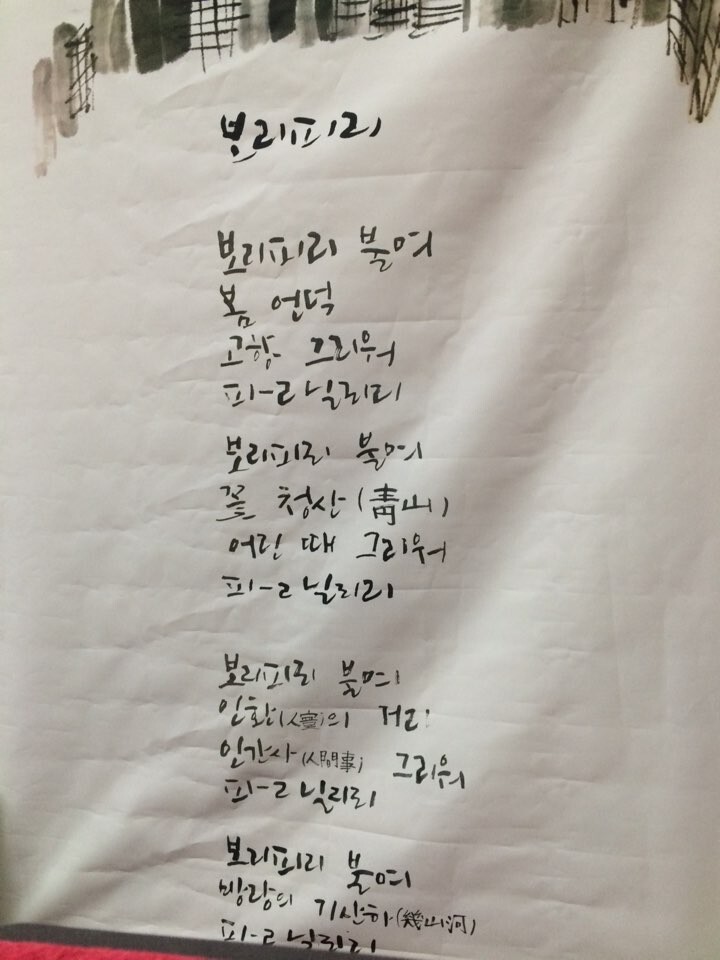 보리피리
보리피리 불며
봄 언덕
고향 그리워
피-ㄹ 닐리리
보리피리 불며
꽃 청산(靑山)
어린 때 그리워
피-ㄹ 닐리리
보리피리 불며
인환(人寰)의 거리
인간사(人間事) 그리워
피-ㄹ 닐리리
보리피리 불며
방랑의 기산하(幾山河)
피-ㄹ 닐리리